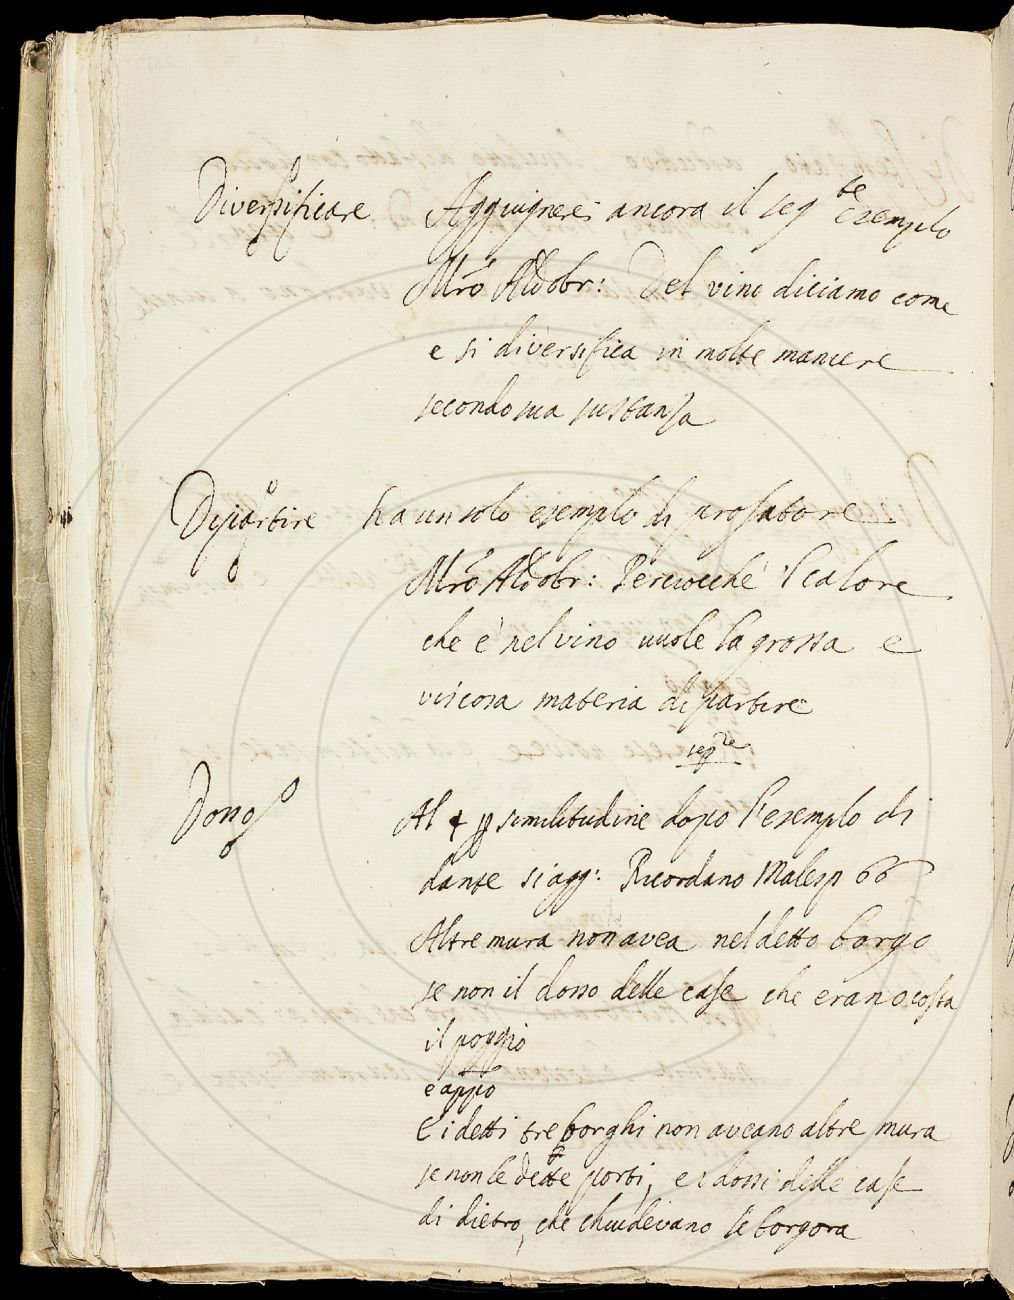 Diversificare Aggiugnerei ancora il seg.te esempio
Mro Aldobr: Del vino diciamo come
e si diversifica in molte maniere
secondo sua sustanza
Dispartire ha un solo esemplo di prosatore
Mro Aldobr: Perciocche 'l calore
che è nel vino vuole la grossa e
viscosa materia dispartire
Dosso
Al per similitudine dopo l'esemplo di
dante si agg: Ricordano Malesp 66
Altre mura non avea nel detto borgo
se non il dosso delle case che erano costa
il poggio
e appo
E i detti tre borghi non aveano altre mura
se non le dette porti, e i dossi delle case
di dietro, che chiudevano le borgora